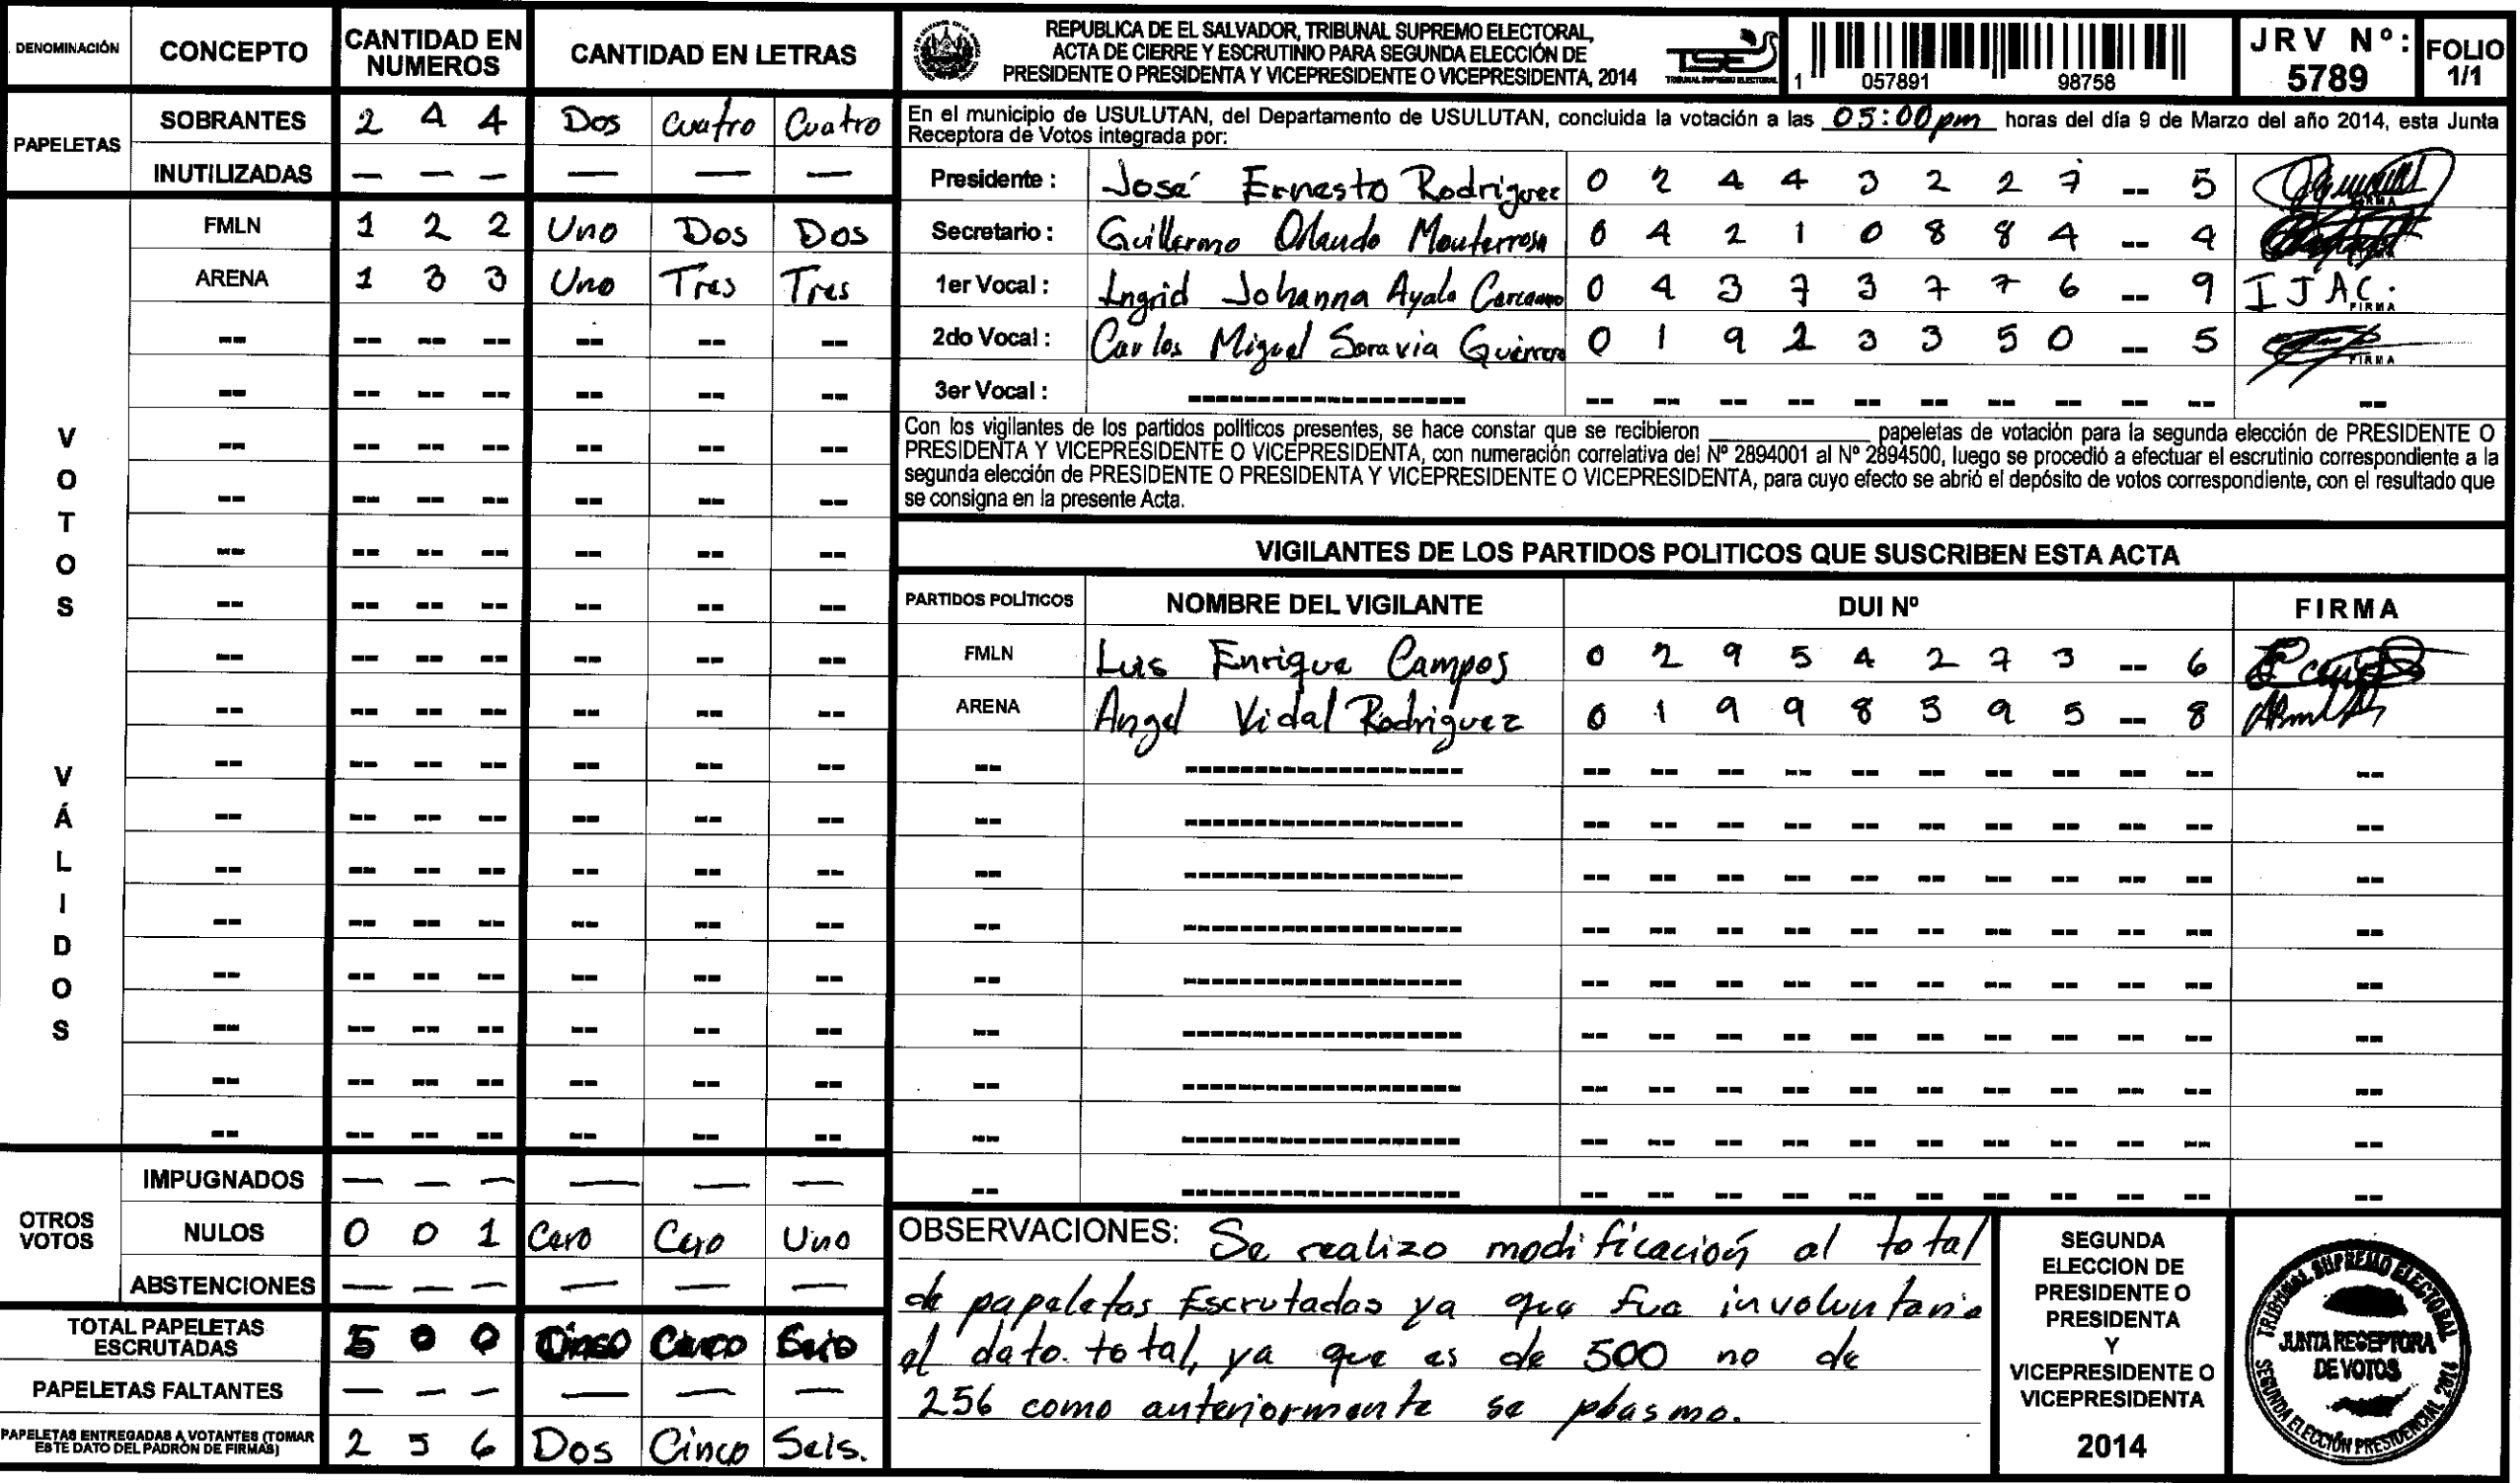 DENOMINACIÓN CONCEPTO CANTIDAD EN NUMEROS CANTIDAD EN LETRAS
PAPELETAS
SOBRANTES 2 4 4 Dos Cuatro Cuatro
INUTILIZADAS — — — — — —
VOTOS VÁLIDOS
FMLN 1 2 2 Uno Dos Dos
ARENA 1 3 3 Uno Tres Tres
OTROS VOTOS
IMPUGNADOS — — — — — —
NULOS 0 0 1 Cero Cero Uno
ABSTENCIONES — — — — — —
TOTAL PAPELETAS ESCRUTADAS 5 0 0 Cinco
PAPELETAS FALTANTES — — — — — —
PAPELETAS ENTREGADAS A VOTANTES (TOMAR ESTE DATO DEL PADRÓN DE FIRMAS) 2 5 6 Dos Cinco Seis.
REPUBLICA DE EL SALVADOR, TRIBUNAL SUPREMO ELECTORAL,
ACTA DE CIERRE Y ESCRUTINIO PARA SEGUNDA ELECCIÓN DE
PRESIDENTE O PRESIDENTA Y VICEPRESIDENTE O VICEPRESIDENTA, 2014
TSE
TRIBUNAL SUPREMO ELECTORAL
1 057891 98758
JRV Nº: 5789
FOLIO 1/1
En el municipio de USULUTAN, del Departamento de USULUTAN, concluida la votación a las 05:00 pm horas del día 9 de Marzo del año 2014, esta Junta
Receptora de Votos integrada por:
Presidente : José Ernesto Rodriguez 0 2 4 4 3 2 2 7 -- 5
Secretario : Guillermo Orlando Monterrosa 0 4 2 1 0 8 8 4 -- 4
1er Vocal : Ingrid Johanna Ayala Carcamo 0 4 3 7 3 7 7 6 -- 9 I J A C. FIRMA
2do Vocal : Carlos Miguel Saravia Guerrero 0 1 9 2 3 3 5 0 -- 5 FIRMA
3er Vocal :
Con los vigilantes de los partidos políticos presentes, se hace constar que se recibieron ______ papeletas de votación para la segunda elección de PRESIDENTE O
PRESIDENTA Y VICEPRESIDENTE O VICEPRESIDENTA, con numeración correlativa del Nº 2894001 al Nº 2894500, luego se procedió a efectuar el escrutinio correspondiente a la
segunda elección de PRESIDENTE O PRESIDENTA Y VICEPRESIDENTE O VICEPRESIDENTA, para cuyo efecto se abrió el depósito de votos correspondiente, con el resultado que
se consigna en la presente Acta.
VIGILANTES DE LOS PARTIDOS POLITICOS QUE SUSCRIBEN ESTA ACTA
PARTIDOS POLÍTICOS NOMBRE DEL VIGILANTE DUI Nº FIRMA
FMLN Luis Enrique Campos 0 2 9 5 4 2 7 3 -- 6
ARENA Angel Vidal Rodriguez 0 1 9 9 8 3 9 5 -- 8
OBSERVACIONES: Se realizo modificación al total
de papeletas Escrutadas ya que fue involuntario
el dato total, ya que es de 500 no de
256 como anteriormente se plasmo.
SEGUNDA
ELECCION DE
PRESIDENTE O
PRESIDENTA
Y
VICEPRESIDENTE O
VICEPRESIDENTA
2014
TRIBUNAL SUPREMO ELECTORAL
JUNTA RECEPTORA
DE VOTOS
SEGUNDA ELECCIÓN PRESIDENCIAL 2014